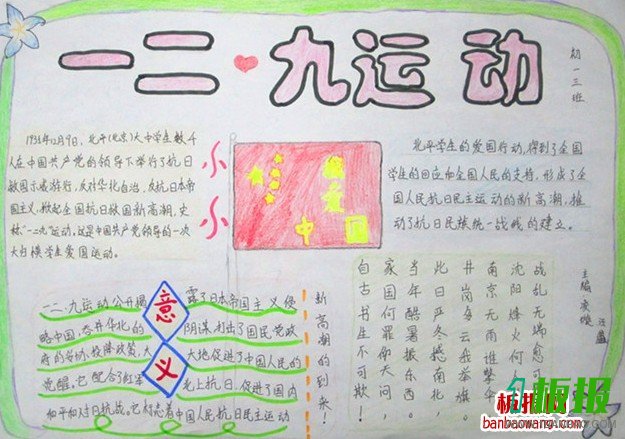 一二·九运动
初一三班
1935年12月9日,北平(北京)大中学生数千
人在中国共产党的领导下举行了抗日
救国示威游行,反对华北自治,反抗日本帝
国主义,掀起全国抗日救国新高潮,史
称"一二九"运动,这是中国共产党领导的一次
大规模学生爱国运动。
小
小
中国
北平学生的爱国行动,得到了全国
学生的回应和全国人民的支持,形成了全
国人民抗日民主运动的新高潮,推
动了抗日民族统一战线的建立。
主编
意义
一二·九运动公开揭露了日本帝国主义侵
略中国,吞并华北的阴谋,打出了国民党政
府的妥协政策,大大地促进了中国人民的
觉醒,它配合了红军北上抗日,促进了国内
和平和对日抗战,它标志着中国人民抗日民主运动
新高潮的到来!
战乱无端愈可
沈阳烽火何
南京无雨谁擎
井岗每云我举旗
此日严冬撼南北,
当年酷暑振东西。
家国何罪你天问,
自古书生不可欺!
板报
板报网
banbaowang.com